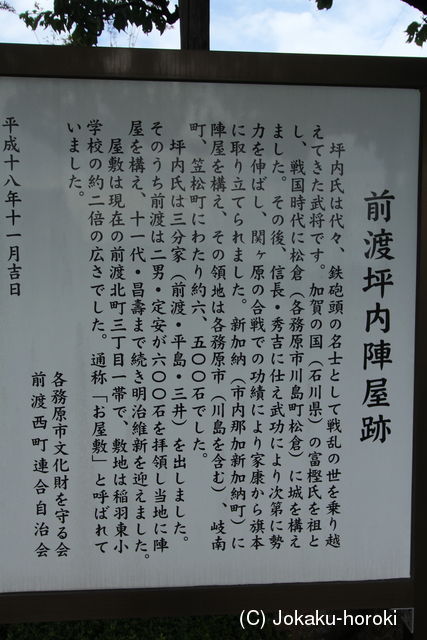 前渡坪内陣屋跡
坪内氏は代々、鉄砲頭の名士として戦乱の世を乗り越
えてきた武将です。加賀の国（石川県）の富樫氏を祖と
し、戦国時代に松倉（各務原市川島町松倉）に城を構え
ました。その後、信長・秀吉に仕え武功により次第に勢
力を伸ばし、関ヶ原の合戦での功績により家康から旗本
に取り立てられました。新加納（市内那加新加納町）に
陣屋を構え、その領地は各務原市（川島を含む）、岐南
町、笠松町にわたり約六、五〇〇石でした。
坪内氏は三分家（前渡・平島・三井）を出しました。
そのうち前渡は二男・定安が六〇〇石を拝領し当地に陣
屋を構え、十一代・昌壽まで続き明治維新を迎えました。
屋敷は現在の前渡北町三丁目一帯で、敷地は稲羽東小
学校の約二倍の広さでした。通称「お屋敷」と呼ばれて
いました。
平成十八年十一月吉日
各務原市文化財を守る会
前渡西町連合自治会
(C) Jokaku-horoki